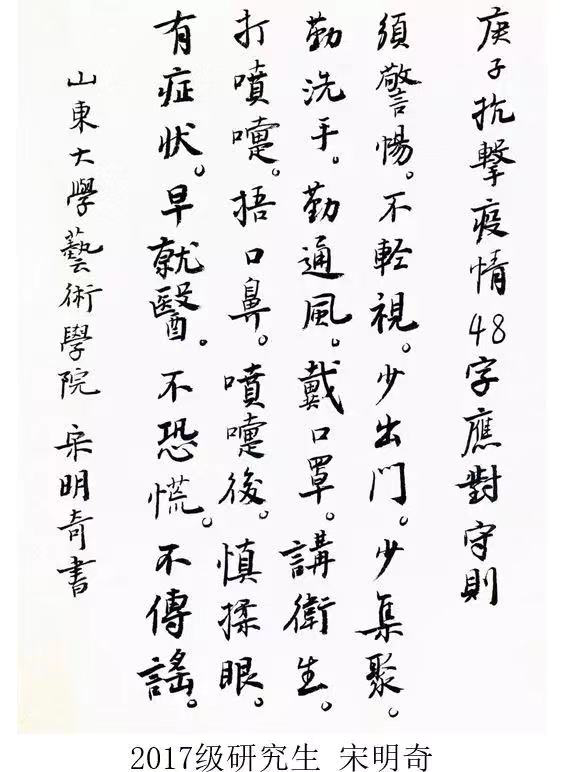 庚子抗擊疫情48字應對守則
須警惕。不輊視。少出門。少集聚。
勤洗手。勤通風。戴口罩。講衛生。
打噴嚏。捂口鼻。噴嚏後。慎揉眼。
有症状。早就醫。不恐慌。不傳謠。
山東大學藝術學院 宋明奇書
2017级研究生 宋明奇